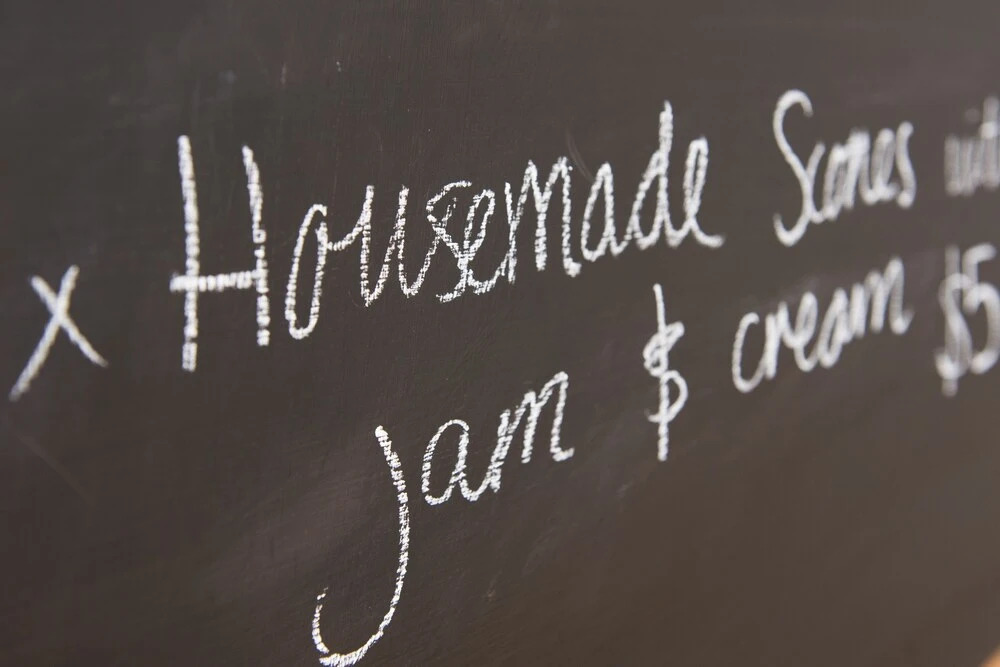 x Housemade Scones wit
Jam $ cream $5